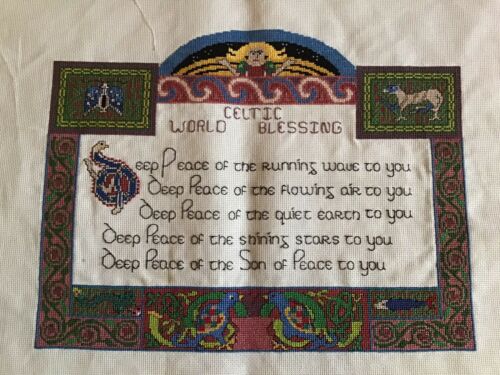 CELTIC
WORLD BLESSING
Deep Peace of the Running wave to you
Deep Peace of the flowing air to you
Deep Peace of the quiet earth to you
Deep Peace of the shining stars to you
Deep Peace of the Son of Peace to you